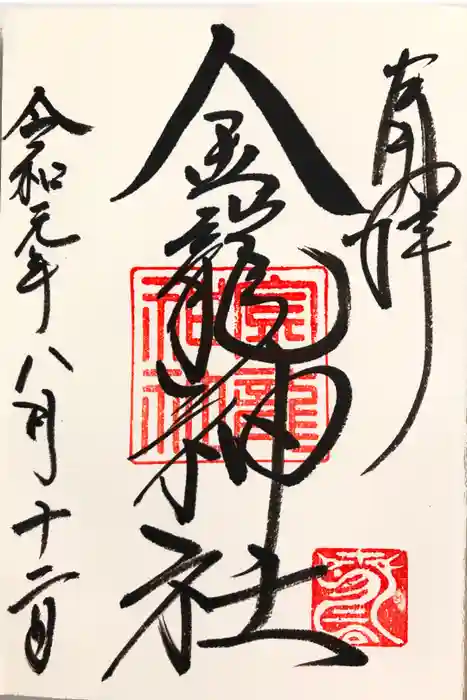 奉拝
金龍神社
令和元年八月十二日